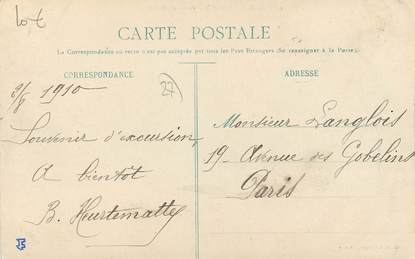 Lot
CARTE POSTALE
La Correspondance au recto n'est pas acceptée par tous les Pays Etrangers (Se renseigner à la Poste).
CORRESPONDANCE
ADRESSE
27
1910
Souvenir d'excursion
A bientôt
B. Heurtematte
Monsieur Langlois
19 Avenue des Gobelins
Paris